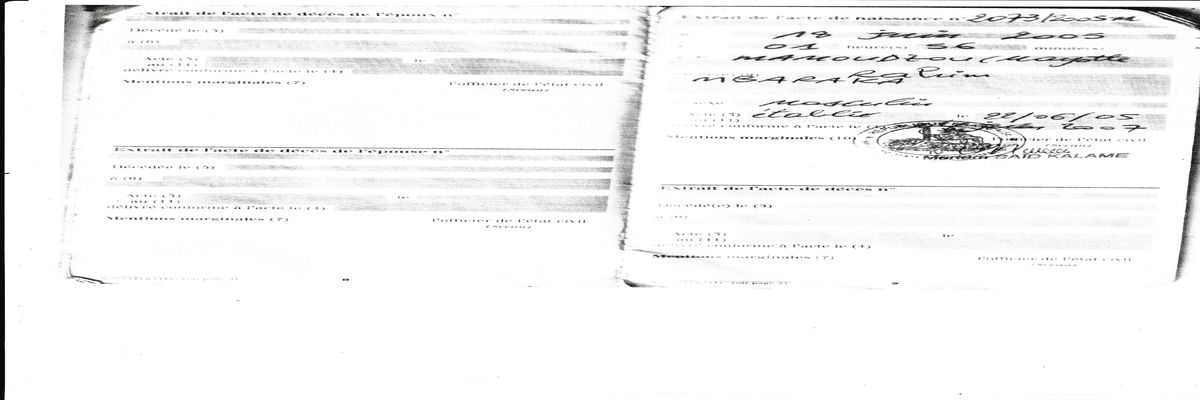 Extrait de l'acte de décès de l'époux n°
Décédé le (5)
à (6)
Acte (5) le
au (11)
délivré conforme à l'acte le (4)
Mentions marginales (7) l'officier de l'état civil
(Sceau)
Extrait de l'acte de décès de l'épouse n°
Décédée le (5)
à (6)
Acte (5) le
au (11)
délivré conforme à l'acte le (4)
Mentions marginales (7) l'officier de l'état civil
(Sceau)
8
Extrait de l'acte de naissance n° 2073/2005
19 juin 2005
01 heure(s) 56 minute(s)
MAMOUDZOU Mayotte
Karim
MBARAKA
sexe Masculin
Acte (5) établi le 22/06/05
au (11)
conforme à l'acte le 2007
Mentions marginales (10)
SAÏD KALAME
Extrait de l'acte de décès n°
Décédé(e) le (5)
à (6)
Acte (5) le
au (11)
délivré conforme à l'acte le (4)
Mentions marginales (7) l'officier de l'état civil
(Sceau)
9